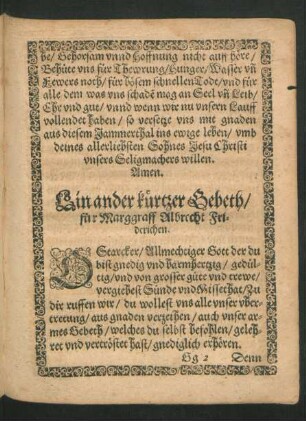 be/ Gehorsam vnnd Hoffnung nicht auff höre/
Behüte vns für Thewrung/Hunger/Wasser vñ
Fewers noth/ für bösem schnellen Tode/vnd für
alle dem was vns schadẽ mag an Seel vñ Leib/
Ehr vnd gut/ vnnd wenn wir nu vnsern Lauff
vollendet haben/ so versetze vns mit gnaden
aus diesem Jammerthal ins ewige leben/ vmb
deines allerliebsten Sohnes Jesu Christi
vnsers Seligmachers willen.
Amen.
Ein ander kürtzer Gebeth/
für Marggraff Albrecht Fri-
derichen.
O Starcker/Allmechtiger Gott der du
bist gnedig vnd barmhertzig/ gedül-
tig/vnd von grosser güte vnd trewe/
vergiebest Sünde vnd Missethat/Zu
dir ruffen wir/ du wollest vns alle vnser vber-
trettung/ aus gnaden verzeihen/ auch vnser ar-
mes Gebeth/ welches du selbst befohlen/ geleh-
ret vnd vertröstet hast/ gnediglich erhören.
Gg 2 Denn